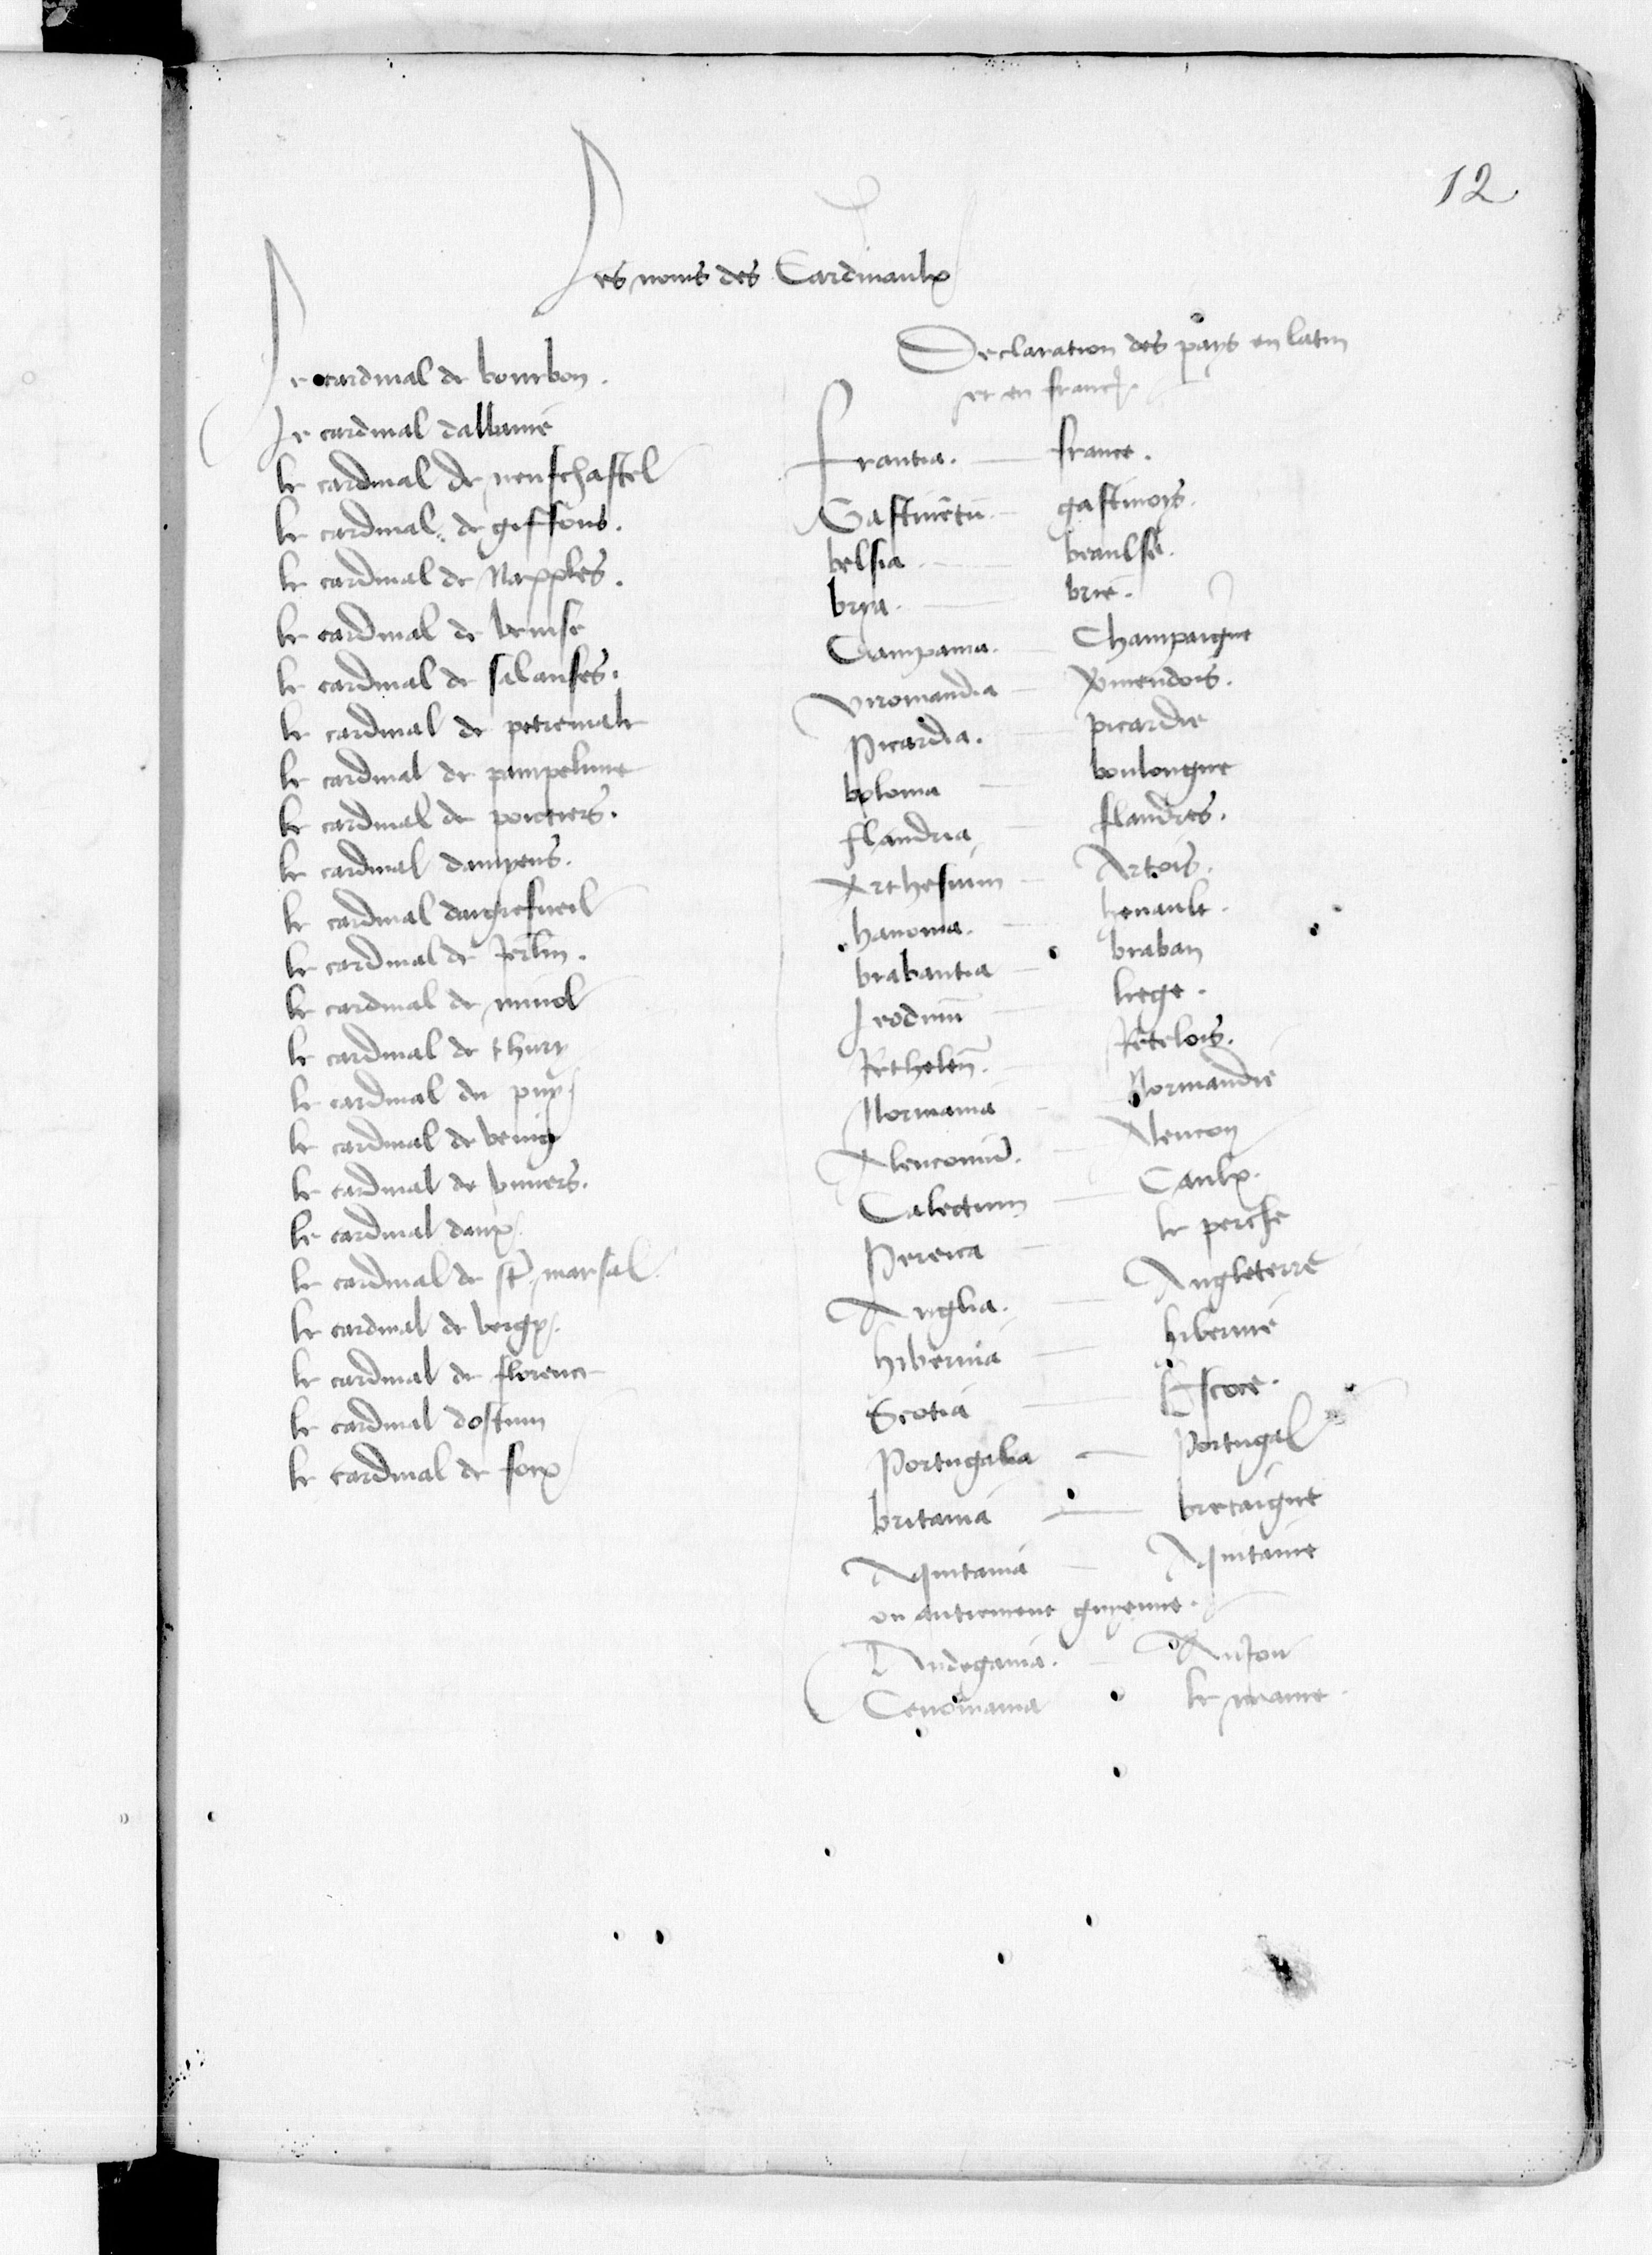 12
Les noms des Cardinaulx
Le cardinal de bourbon.
Le cardinal dalbanie
le cardinal de neufchastel
le cardinal de giffons.
le cardinal de Napples.
le cardinal de venise
le cardinal de salusses.
le cardinal de petremale
le cardinal de pampelune
le cardinal de poictiers.
le cardinal damyens.
le cardinal daigrefueil
le cardinal de Jerlm.
le cardinal de
le cardinal de thury
le cardinal du puy
le cardinal de
le cardinal de viviers.
le cardinal daux
le cardinal de st marsal
le cardinal de
le cardinal de florence
le cardinal dostum
le cardinal de foix
Declaration des pays en latin
et en francs.
Francia. france.
Gastinetu gastinoys.
belsia beaulse.
brya. brie.
Campania. Champaigne
viromandia vermendois.
Picardia. picardie
bolonia boulongne
flandria flandres.
Arthesium Artois.
hanonia. henault.
brabantia braban
Leodium liege.
Rethelen. Retelois.
Normania Normandie
Alenconiu. Alencon
Calectum Caulx.
Pertica le perche
Anglia. Angleterre
hibernia hibernie
Scotia Escoce.
Portugalia Portugal
britania bretaigne
Aquitania Aquitaine
ou autrement guyenne.
Andegavia. Anjou
Cenomania le maine.